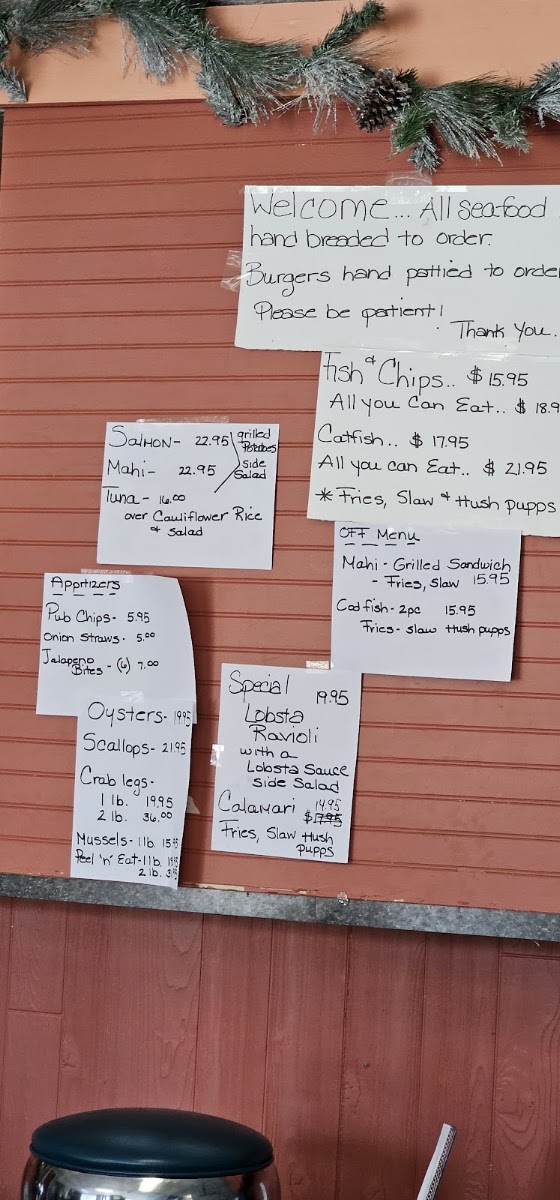 Welcome... All seafood
hand breaded to order.
Burgers hand pattied to orde
Please be patient!
Thank You.
Fish & Chips.. $ 15.95
All you Can Eat.. $ 18.9
Catfish.. $ 17.95
All you can Eat.. $ 21.95
* Fries, Slaw & Hush pupps
Salmon- 22.95 grilled Potatoes
Mahi- 22.95 side Salad
Tuna- 16.00
over Cauliflower Rice
& Salad
OFF Menu
Mahi - Grilled Sandwich
- Fries, Slaw 15.95
Codfish- 2pc 15.95
Fries- slaw Hush pupps
Apprtizers
Pub Chips- 5.95
Onion Straws- 5.00
Jalapeno Bites - (6) 7.00
Oysters- 19.95
Scallops- 21.95
Crab legs-
1 lb. 19.95
2 lb. 36.00
Mussels- 1 lb.
Peel 'n' Eat- 1 lb.
2 lb.
Special 19.95
Lobsta
Ravioli
with a
Lobsta Sauce
side Salad
Calamari 14.95
$17.95
Fries, Slaw Hush
pupps